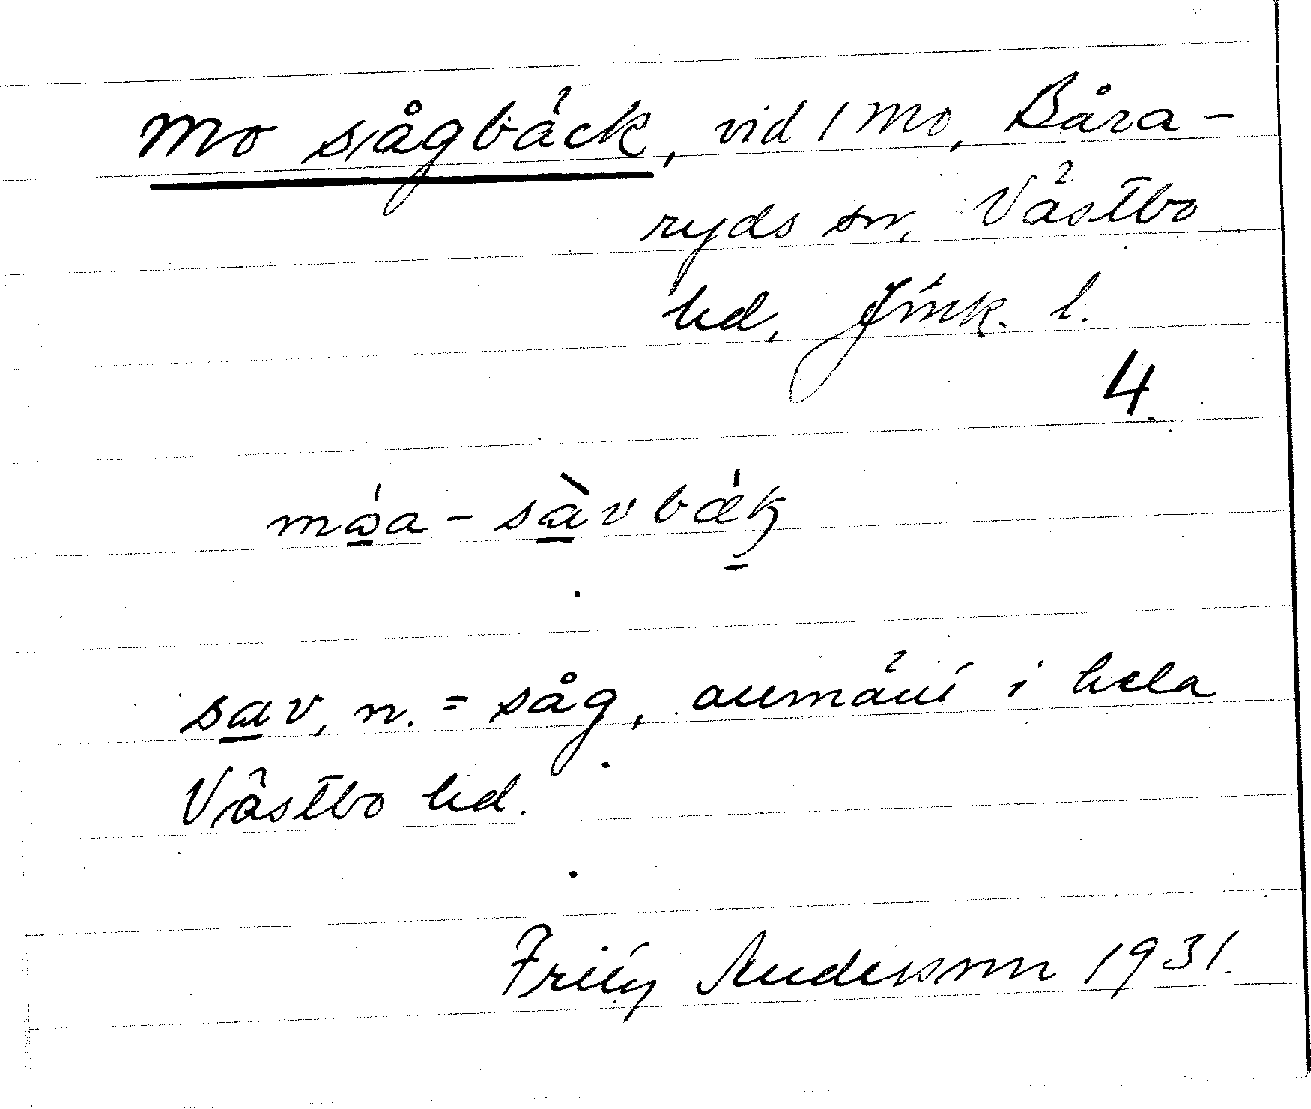 Mo sågbäck, vid 1 Mo, Båra-
ryds sn, Västbo
hd, Jönk. l.
4.
sav, n. = såg, allmänt i hela
Västbo hd.
Andersson 1931.